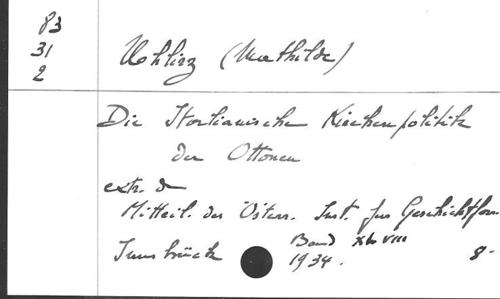 83
31
2
Uhlirz (Mathilde)
Die Italianische Kirchenpolitik
der Ottonen
extr. d
Mitteil. des Österr. Inst. für Geschichtsfor.
Innsbrück Band XLVIII
1934. 8-